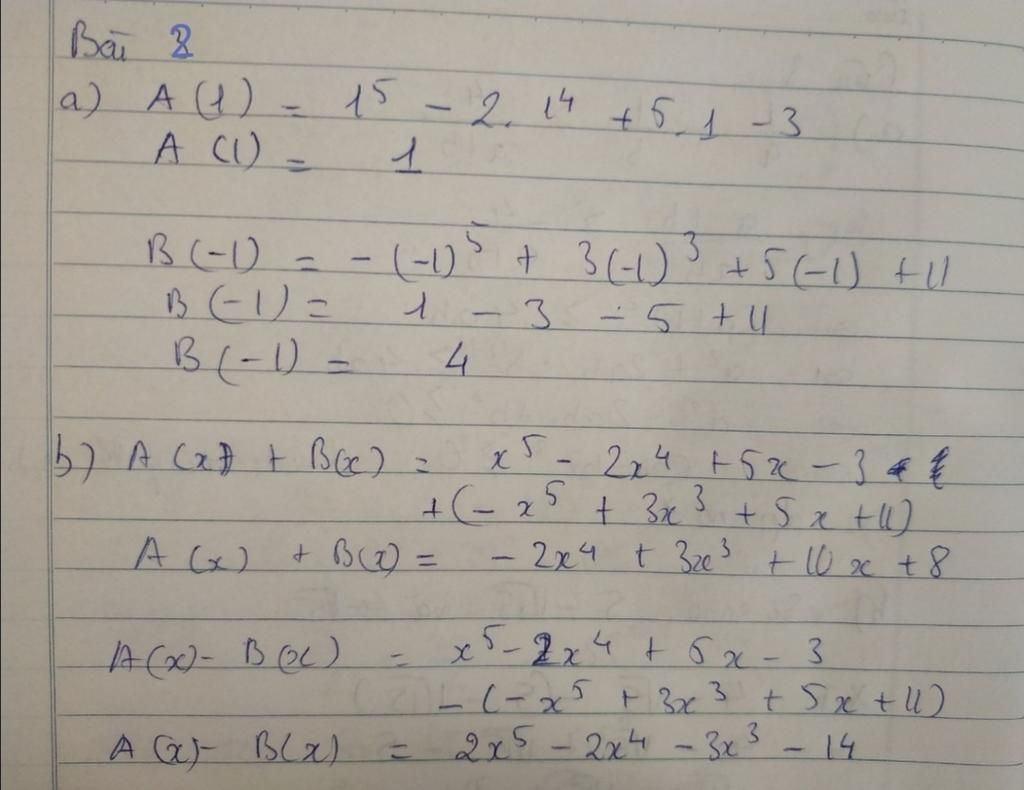 Bài 2
a) A(1) = 1⁵ - 2. 1⁴ + 5.1 - 3
A(1) = 1
B(-1) = -(-1)⁵ + 3(-1)³ + 5(-1) + 11
B(-1) = 1 - 3 - 5 + 11
B(-1) = 4
b) A(x) + B(x) = x⁵ - 2x⁴ + 5x - 3
+(-x⁵ + 3x³ + 5x + 11)
A(x) + B(x) = -2x⁴ + 3x³ + 10x + 8
A(x) - B(x) = x⁵ - 2x⁴ + 5x - 3
-(-x⁵ + 3x³ + 5x + 11)
A(x) - B(x) = 2x⁵ - 2x⁴ - 3x³ - 14